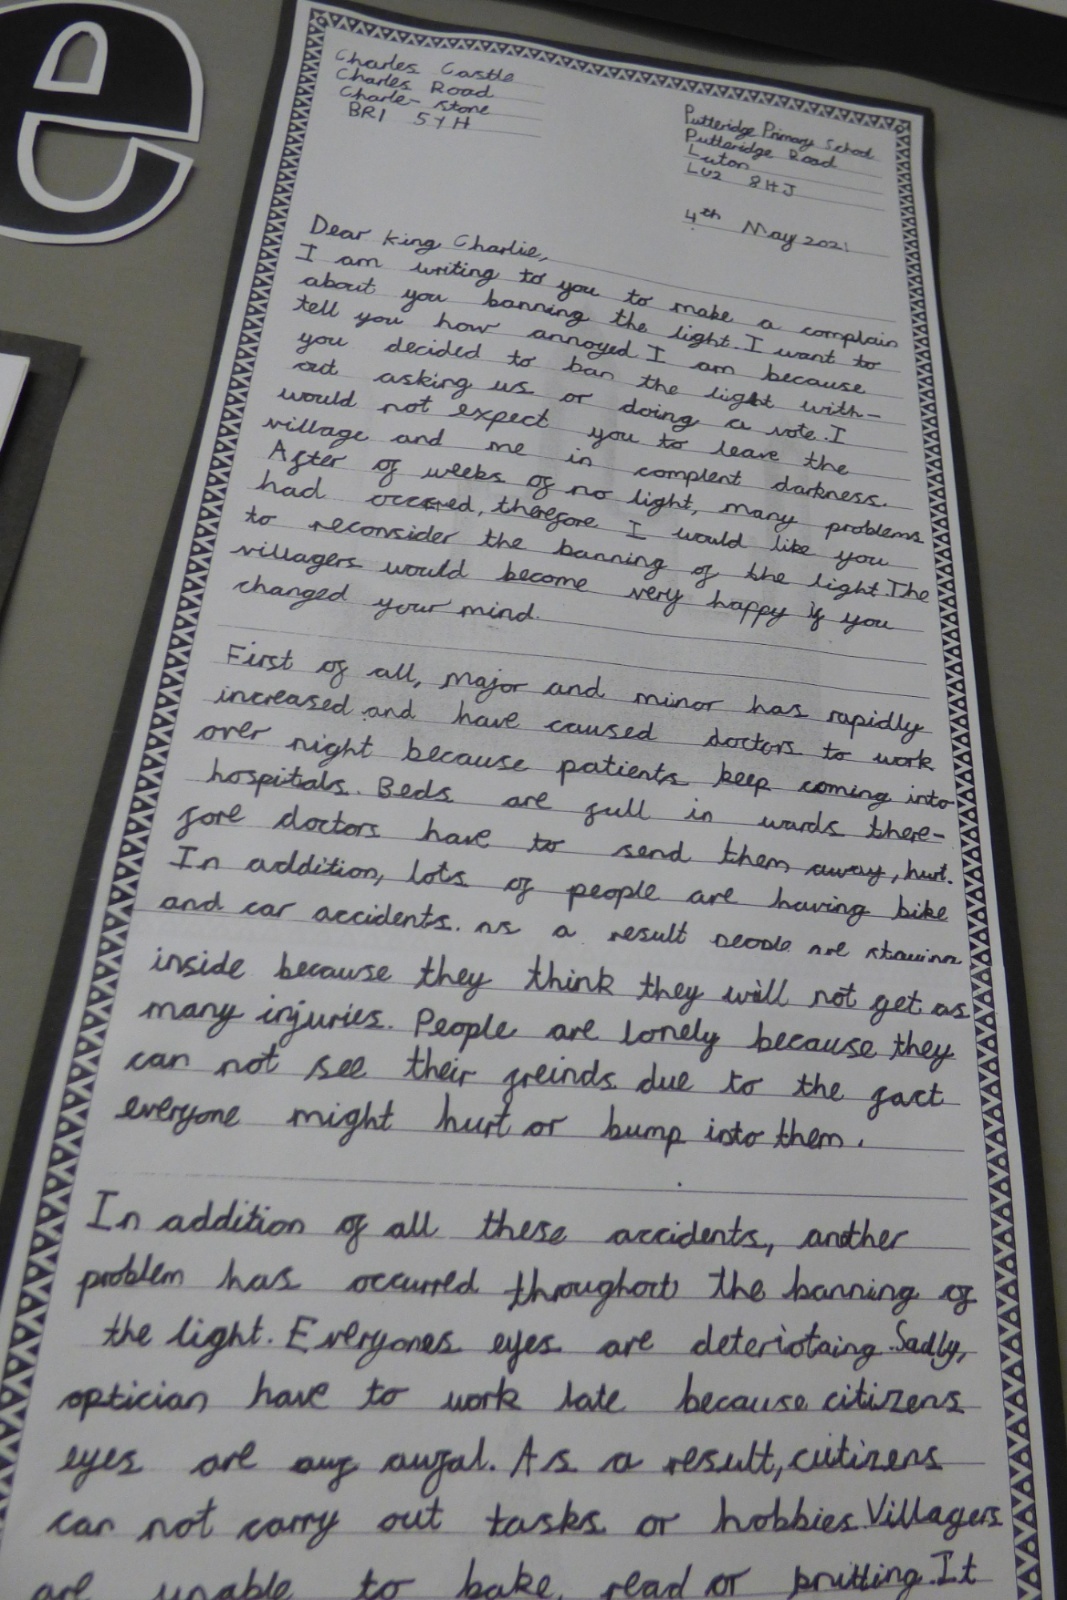 e
Charles Castle
Charles Road
Charle-stone
BR1 5YH
Putteridge Primary School
Putteridge Road
Luton
LU2 8HJ
4th May 2021
Dear King Charlie,
I am writing to you to make a complain
about you banning the light. I want to
tell you how annoyed I am because
you decided to ban the light with-
out asking us or doing a vote. I
would not expect you to leave the
village and me in complent darkness.
After of weeks of no light, many problems
had occered, therefore I would like you
to reconsider the banning of the light. The
villagers would become very happy if you
changed your mind.
First of all, major and minor has rapidly
increased and have caused doctors to work
over night because patients keep coming into
hospitals. Beds are full in wards there-
fore doctors have to send them away, hurt.
In addition, lots of people are having bike
and car accidents. As a result people are staying
inside because they think they will not get as
many injuries. People are lonely because they
can not see their freinds due to the fact
everyone might hurt or bump into them.
In addition of all these accidents, another
problem has occurred throughout the banning of
the light. Everyones eyes are deteriotaing. Sadly,
optician have to work late because citizens
eyes are awfal. As a result, cutizens
can not carry out tasks or hobbies. Villagers
are unable to bake, read or It